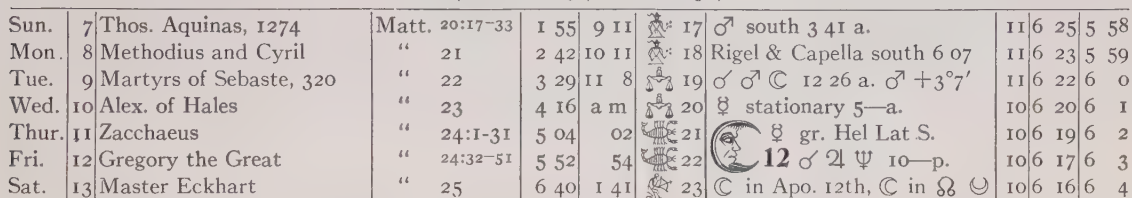 Sun. 7 Thos. Aquinas, 1274 Matt. 20:17-33 1 55 9 11 17 ♂ south 3 41 a. 11 6 25 5 58
Mon. 8 Methodius and Cyril " 21 2 42 10 11 18 Rigel & Capella south 6 07 11 6 23 5 59
Tue. 9 Martyrs of Sebaste, 320 " 22 3 29 11 8 ♎ 19 ☌ ♂ ☾ 12 26 a. ♂ +3°7′ 11 6 22 6 0
Wed. 10 Alex. of Hales " 23 4 16 a m ♎ 20 ☿ stationary 5—a. 10 6 20 6 1
Thur. 11 Zacchaeus " 24:1-31 5 04 02 21 ☿ gr. Hel Lat S. 10 6 19 6 2
Fri. 12 Gregory the Great " 24:32-51 5 52 54 22 12 ☌ ♃ ♆ 10—p. 10 6 17 6 3
Sat. 13 Master Eckhart " 25 6 40 1 41 23 ☾ in Apo. 12th, ☾ in ☊ 10 6 16 6 4